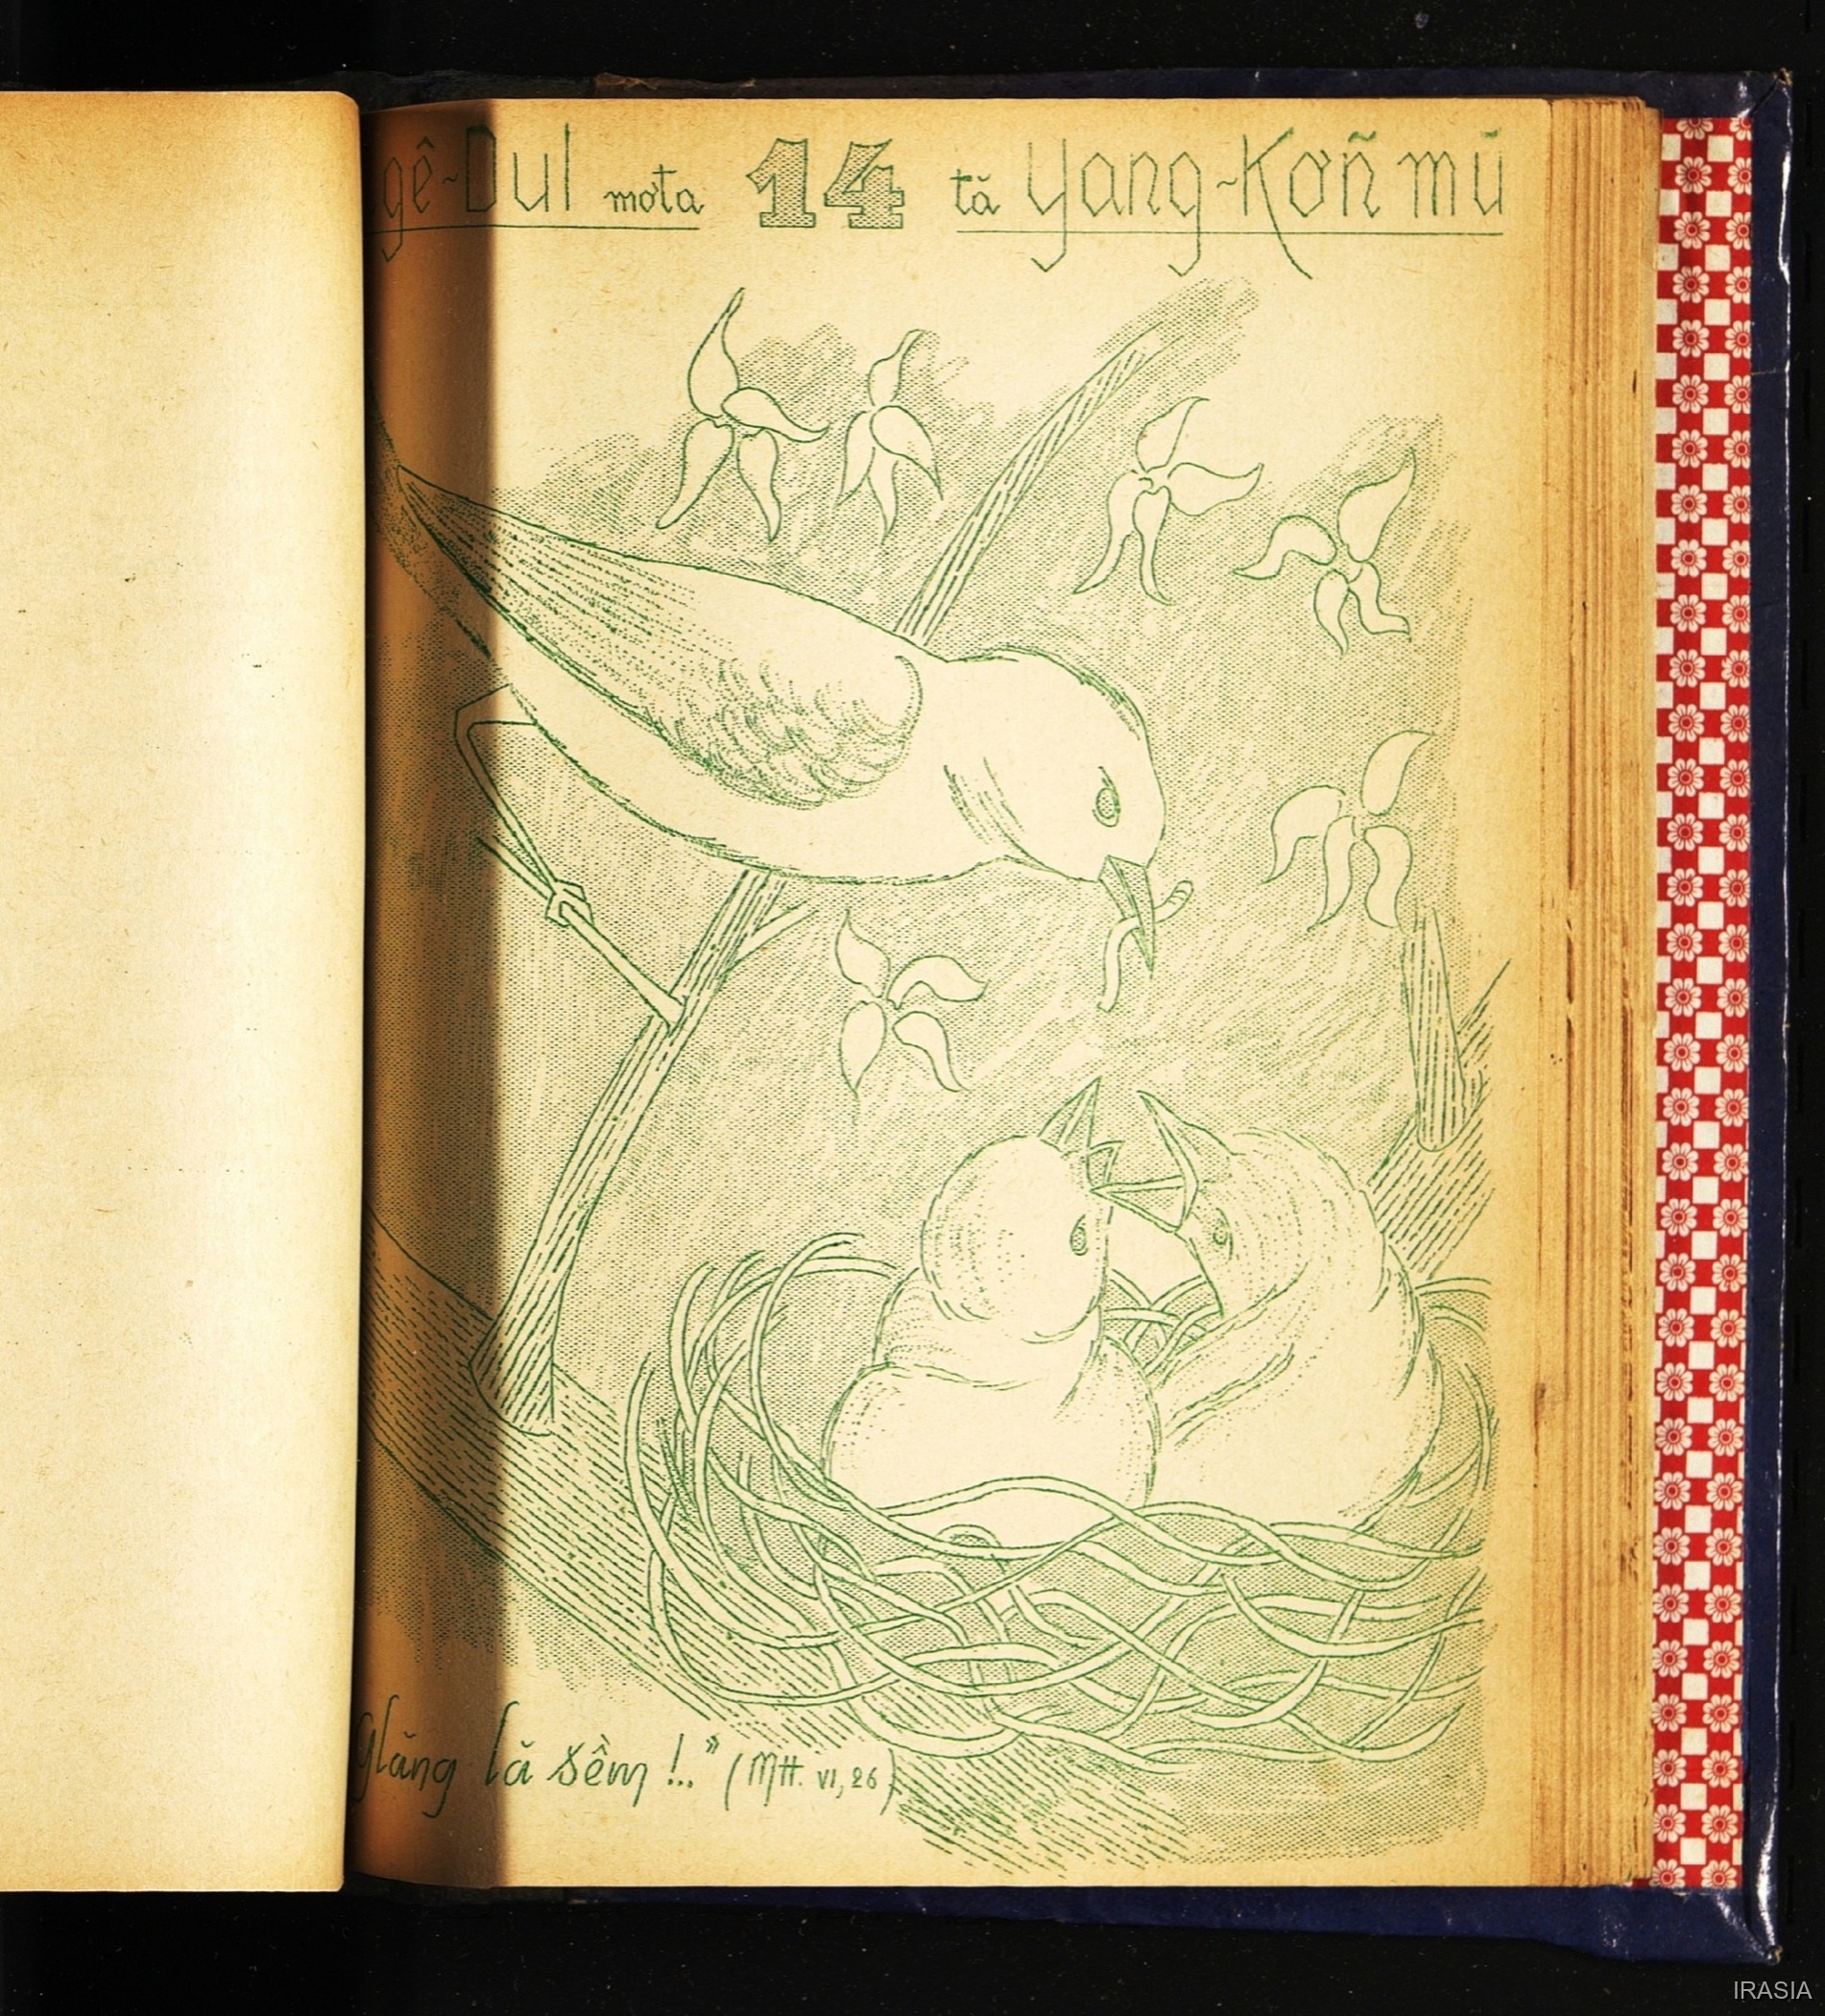 gê-Dul mơta 14 tă Yang-Kơñ mŭ
glăng lă sềm !.." (Mtt. VI, 26)
IRASIA